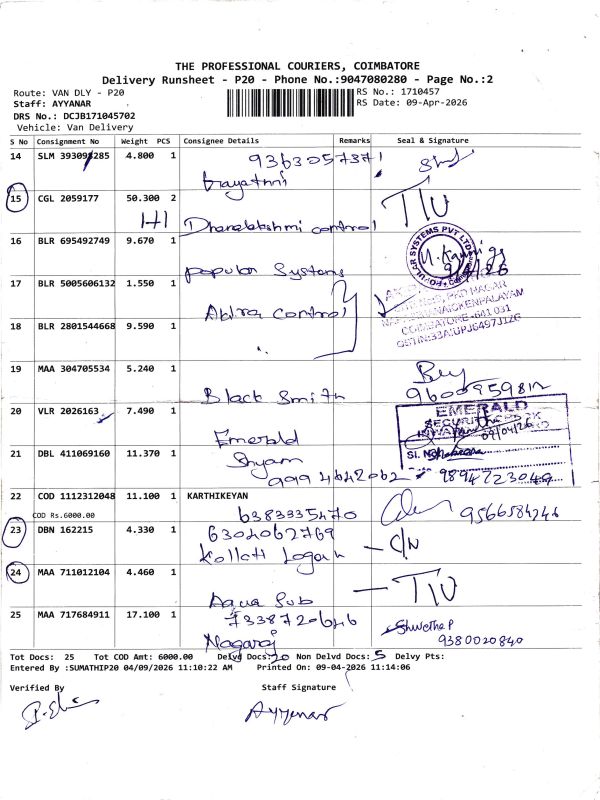 THE PROFESSIONAL COURIERS, COIMBATORE
Delivery Runsheet - P20 - Phone No.:9047080280 - Page No.:2
Route: VAN DLY - P20 RS No.: 1710457
Staff: AYYANAR RS Date: 09-Apr-2026
DRS No.: DCJB171045702
Vehicle: Van Delivery
S No Consignment No Weight PCS Consignee Details Remarks Seal & Signature
14 SLM 393093285 4.800 1 9363057371
Gayathri
15 CGL 2059177 50.300 2 TIU
H1 Dhanalakshmi control
16 BLR 695492749 9.670 1
Popular Systems
17 BLR 5005606132 1.550 1
Abira control
COIMBATORE -641 031
18 BLR 2801544668 9.590 1
19 MAA 304705534 5.240 1
Black Smith
20 VLR 2026163 7.490 1 EMERALD
Emerald 09/04/26
21 DBL 411069160 11.370 1 Shyam
999 4642062 9894723049
22 COD 1112312048 11.100 1 KARTHIKEYAN
COD Rs.6000.00 6383935470 9566584246
23 DBN 162215 4.330 1 6302062769
Kollati Logan - C/N
24 MAA 711012104 4.460 1 - TIU
Aqua Sub
25 MAA 717684911 17.100 1 7338720646 Shwetha P
Nagaraj 9380020840
Tot Docs: 25 Tot COD Amt: 6000.00 Delvd Docs:20 Non Delvd Docs:5 Delvy Pts:
Entered By :SUMATHIP20 04/09/2026 11:10:22 AM Printed On: 09-04-2026 11:14:06
Verified By Staff Signature
Ayyanar